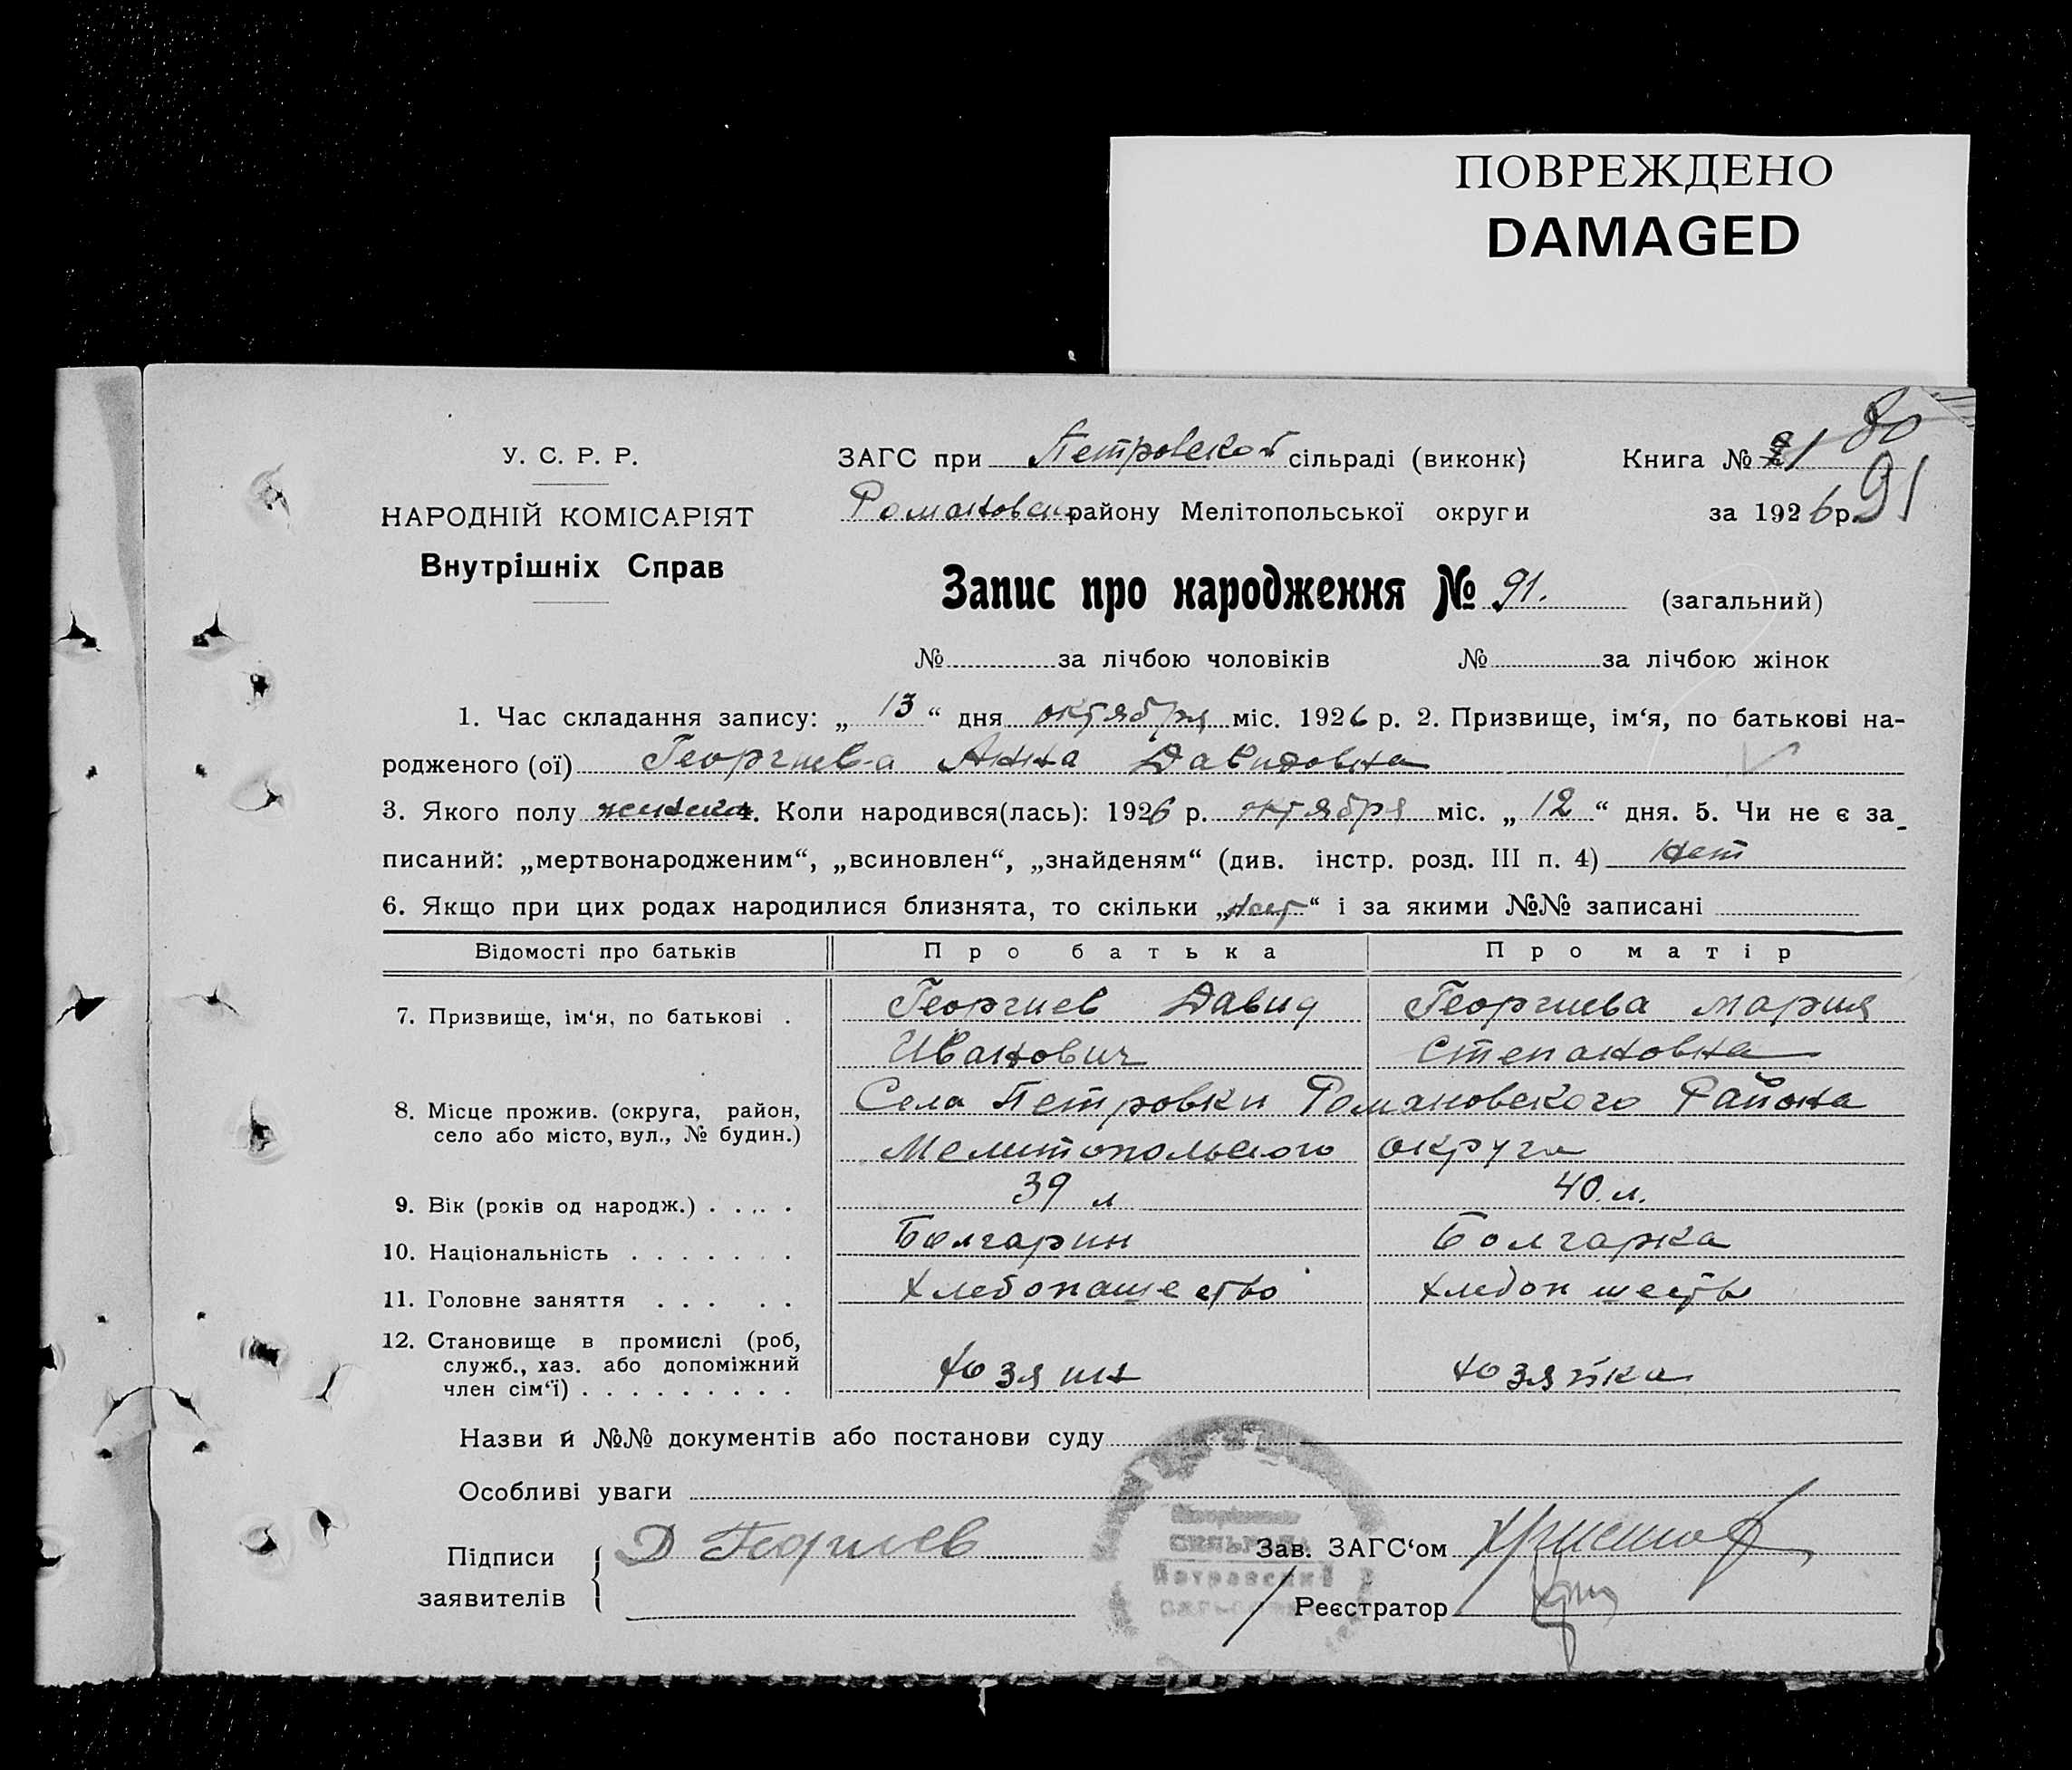 ПОВРЕЖДЕНО
DAMAGED
80
У. С. Р. Р.
НАРОДНІЙ КОМІСАРІЯТ
Внутрішніх Справ
ЗАГС при Петровской сільраді (виконк) Книга №
Романовск району Мелітопольської округи за 1926 р. 91
Запис про народження № 91. (загальний)
№ за лічбою чоловіків № за лічбою жінок
1. Час складання запису: „ 13 “ дня октября міс. 1926 р. 2. Призвище, ім‘я, по батькові на-
родженого (ої) Георгиева Анна Давидовна
3. Якого полу женска 4. Коли народився(лась): 1926 р. октября міс. „ 12 “ дня. 5. Чи не є за-
писаний: „мертвонародженим“, „всиновлен“, „знайденям“ (див. інстр. розд. III п. 4) Нет
6. Якщо при цих родах народилися близнята, то скільки „нет“ і за якими №№ записані
Відомості про батьків Про батька Про матір
7. Призвище, ім‘я, по батькові . Георгиев Давид Георгиева Мария
Иванович Степановна
8. Місце прожив. (округа, район, село або місто, вул., № будин.) Села Петровки Романовского Района
Мелитопольского округа
9. Вік (років од народж.) . . . . . 39 л 40 л.
10. Національність . . . . . . . Болгарин Болгарка
11. Головне заняття . . . . . Хлебопашество хлебоп шеств
12. Становище в промислі (роб,
служб., хаз. або допоміжний
член сім‘ї) . . . . . . . . . Хозяин Хозяйка
Назви й №№ документів або постанови суду
Особливі уваги
Підписи
заявителів
Д Георгиев
Зав. ЗАГС‘ом Христов
Реєстратор
Петровский